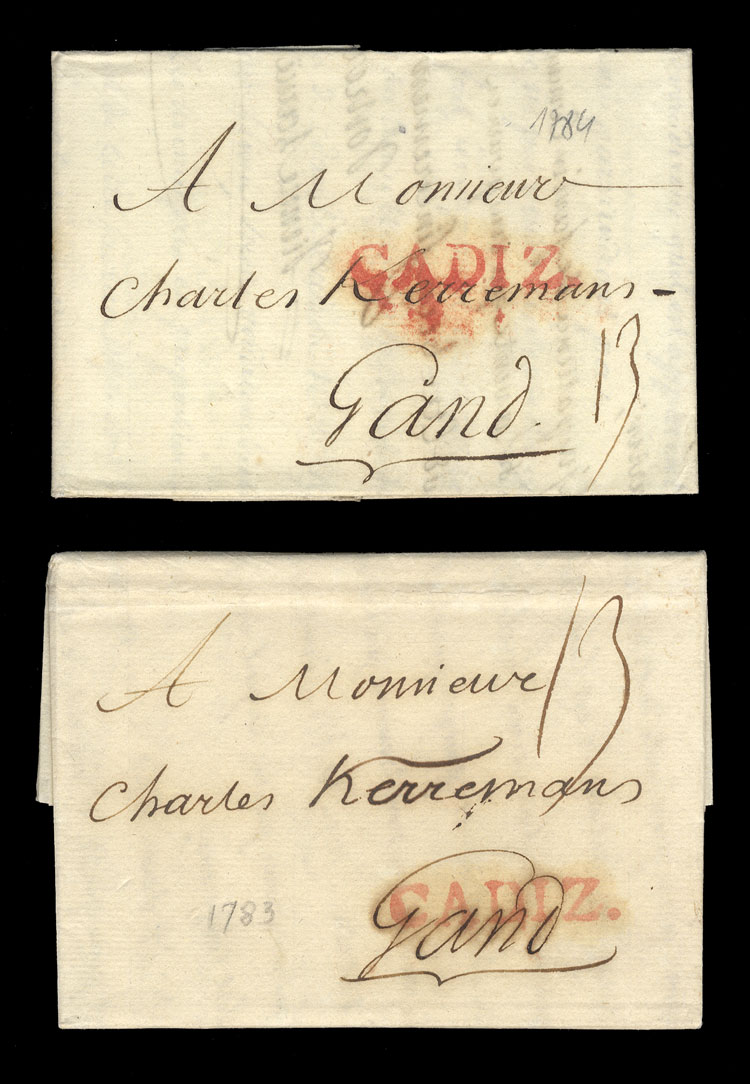 1784
A Monsieur
CADIZ.
Charles Kerremans -
Gand. 13
A Monsieur 13
Charles Kerremans
1783
CADIZ.
Gand